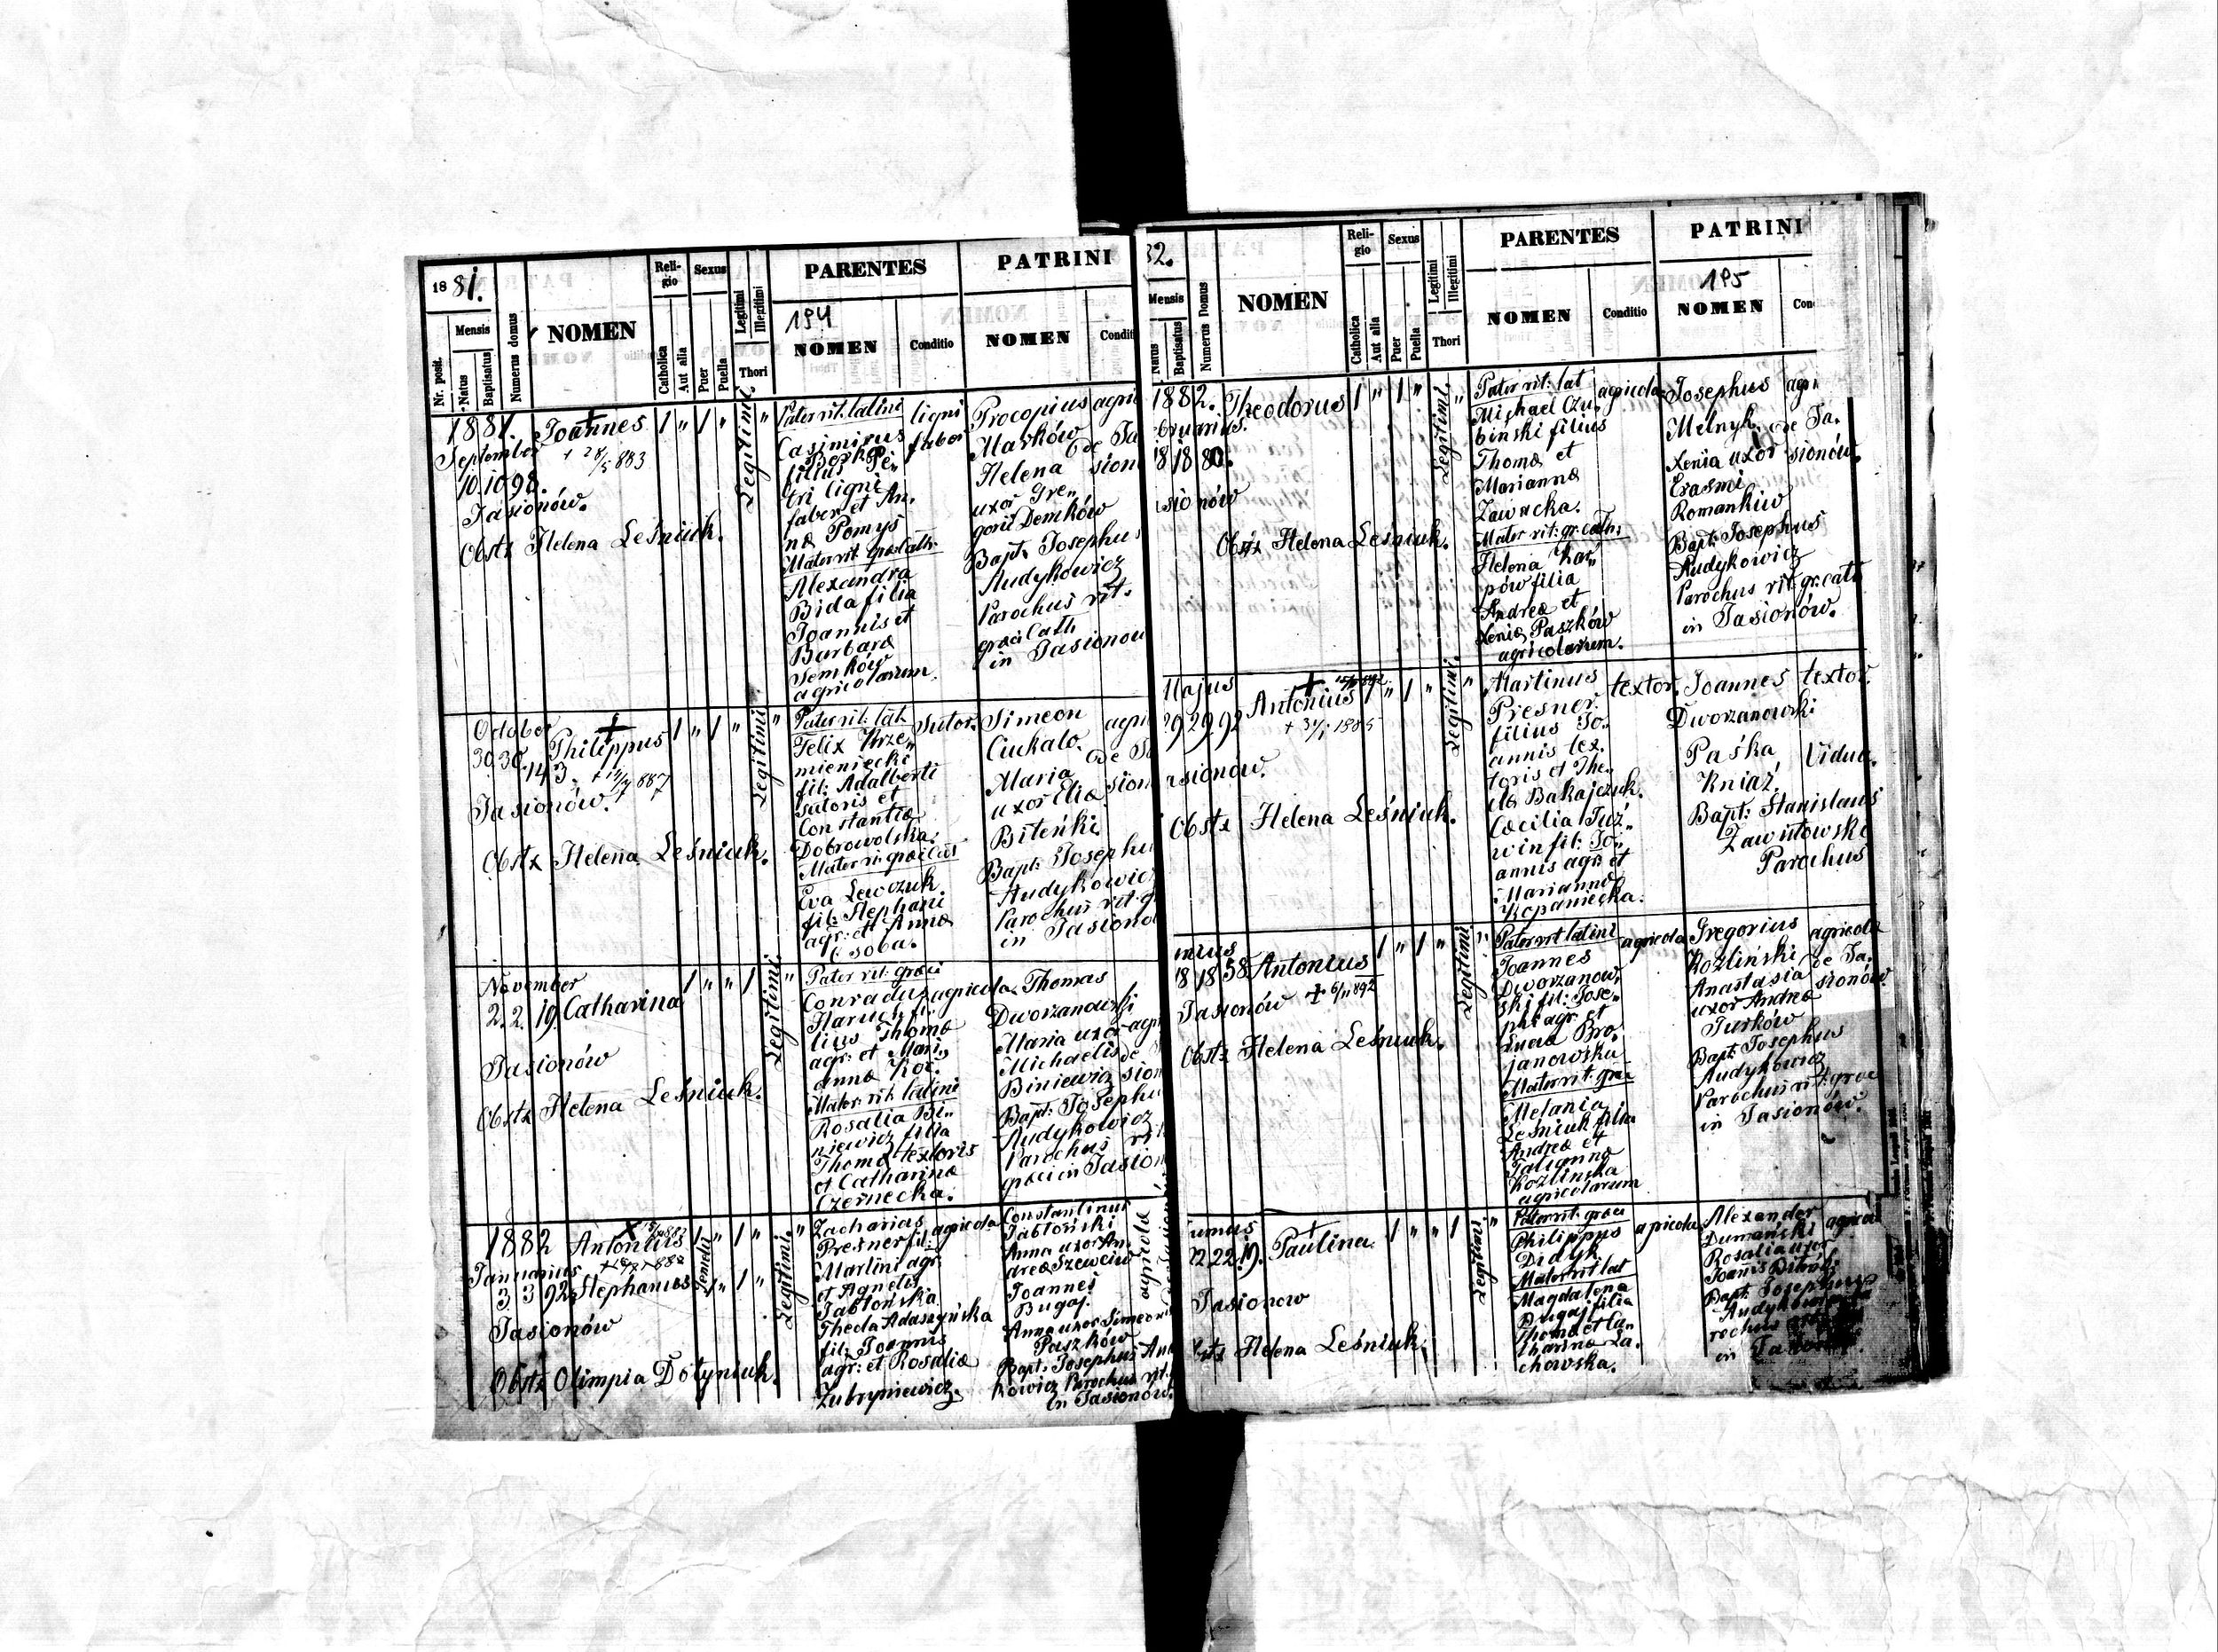 1881.
Nr. post.
Mensis
Natus
Baptisatus
Numerus domus
NOMEN
Religio
Catholica
Aut alia
Sexus
Puer
Puella
Legitimi
Illegitimi
Thori
PARENTES
194
NOMEN
Conditio
PATRINI
NOMEN
Condit
1881.
September
10. 10 98.
Jasionów.
Joannes
+ 28/5 883
Obstx Helena Leśniuk.
1 " 1 "
Legitimi. "
Pater rit: latini
Casimirus
filius Pe„
tri ligni
faber et An„
næ Pomyś
Mater rit. græcath.
Alexandra
Bida filia
Joannis et
Barbaræ
Semków
agricolarum.
ligni
faber
Procopius
Marków
Helena
uxor Gre„
gorii Demków
Bapt: Josephus
Audykowicz
Parochus rit.
græci Cath
in Jasionow
agri
de Ja
sion
October
30. 30. 143.
Jasionów.
Philippus
Obstx Helena Leśniuk.
1 " 1 "
Legitimi. "
Pater rit: lat.
Felix Krze„
mieniecki
fil: Adalberti
sutoris et
Constantiæ
Dobrowolska.
Eva Lewczuk.
fil: Stephani
agr: et Annæ
Osoba.
Sutor.
Simeon
Ciukalo.
Maria
uxor Eliæ
Biteńki
Bapt: Josephu
Audykowicz
Parochus rit. g
in Jasiono
agri
de Ja
sion
November
2. 2. 19.
Jasionów
Catharina
Obstx Helena Leśniuk.
1 " " 1
Legitimi. "
Pater rit: græci
Conradus
lius Thomæ
agr: et Mari„
annæ Koc.
Mater: rit: latini
Rosalia Bi„
niewicz filia
Thomæ textoris
et Catharinæ
Czernecka.
agricola
Thomas
Dworzanowski
Maria uxor
Michaelis
Biniewicz
Bapt: Josephu
Audykowicz
Parochus rit
græci in Jasion
agri
de
sion
1882
Januarius
3 3 92.
Jasionów
Antonius
Stephanus
Gemelli
Obstx Olimpia Dołyniuk.
1 " 1 "
1 " 1 "
Legitimi. "
Zacharias
Presner fil:
Martini agr:
et Agnetis
Jabłońska
Thecla Adaszyńska
fil: Joannis
agr: et Rosaliæ
Zubryniewicz.
agricola
Constantinus
Jabłoński
Anna uxor An„
dreæ Szewciw
Joannes
Bugaj.
Anna uxor Simeonis
Paszków
Bapt: Josephus Aud
kowicz Parochus rit.
in Jasionów.
agricola
82.
Mensis
Natus
Baptisatus
Numerus Domus
NOMEN
Religio
Catholica
Aut alia
Sexus
Puer
Puella
Legitimi
Illegitimi
Thori
PARENTES
NOMEN
Conditio
PATRINI
195
NOMEN
Con
1882.
ebruarius.
18 18 80.
asionów
Theodorus
Obstx Helena Leśniuk.
1 " 1 "
Legitimi. "
Pater rit: lat
Michael Czu„
biński filius
Thomæ et
Mariannæ
Zawacka.
Mater rit: gr: cath:
Helena Kar„
pów filia
Andreæ et
Xeniæ Paszków
agricolarum.
agricola
Josephus
Melnyk.
Xenia uxor
Erasmi
Romankiw
Bapt: Josephus
Audykowicz
Parochus rit: gr: cath
in Jasionów.
agri
de Ja.
sionów.
Majus
29. 29. 92
asionów.
Antonius
Obstx Helena Leśniuk.
1 " 1 "
Legitimi. "
Martinus
Presner.
filius Jo„
annis tex„
toris et The„
clæ Bakajczuk.
Cæcilia Juź„
win fil: Jo„
annis agr: et
Mariannæ
Kopaniecka.
textor.
Joannes
Dworzanowski
Paśka
Kniaź.
Bapt: Stanislaus
Zawistowski
Parochus
textor.
Vidua.
unius
18 18 58
Jasionów
Antonius
+ 6/11 892
Obstx Helena Leśniuk.
1 " 1 "
Legitimi "
Pater rit latini
Joannes
Dworzanow„
ski fil: Jose„
phi agr: et
janowska
Mater rit: græ
Melania
Leśniuk filia
Andreæ et
Tatiannæ
Kozlinska
agricolarum
agricola
Gregorius
Kozliński
Anastasia
uxor Andreæ
Jurków
Bapt: Josephus
Audykowicz
Parochus rit: græc
in Jasionów.
agricola
de Ja.
sionów.
22 22. 19.
Jasionow
Paulina.
Obstx Helena Leśniuk.
1 " " 1
Legitimi "
Pater rit: græci
Philippus
Didyk
Mater rit lat
Magdalena
Bugaj filia
Thomæ et Ca„
tharinæ La„
chowska.
agricola
Alexander
Dumański
Rosalia uxor
Joannis
Bapt: Josephus
agricol